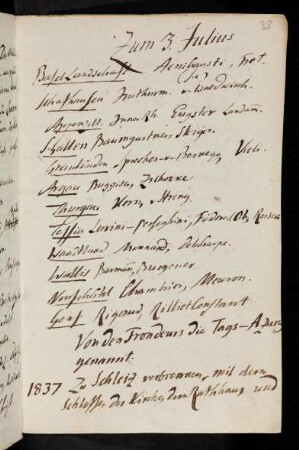 Zum 3. Julius
Basel Landschaft Aenishänsli, Frei.
Schafhausen Im Thurm. v. Waldkirch.
Appenzell Inner Rh. Eugster Landam.
St Gallen Baumgartner, Steiger.
Graubünden Sprecher v. Bernegg, Vieli.
Argau Bruggisser, Zschokke
Thurgau Kern, Streng.
Tessin Luvini-Perseghini,
Waadtland Monnard,
Wallis Barman, Burgener
Neufchâtel Chambrier, Meuron.
Genf Rigaud, Rilliet Constant
Von den Frondeurs die Tags-A
genannt.
1837 Zu Schleiz verbrennen, mit dem
Schlosse, der Kirche, dem Rathhaus und